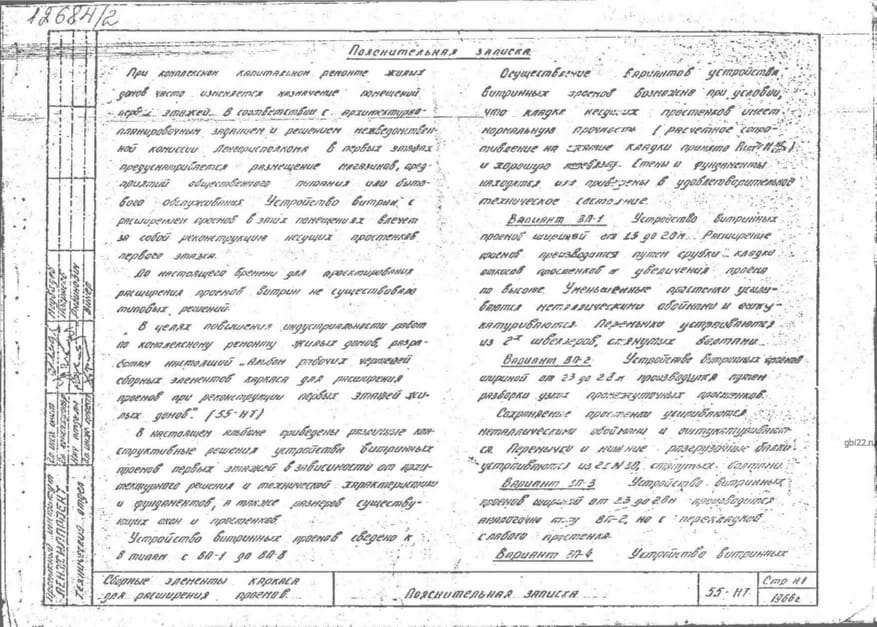 12684/2
Пояснительная записка
При комплексном капитальном ремонте жилых
домов часто изменяется назначение помещений
первых этажей. В соответствии с архитектурно-
планировочным заданием и решением межведомствен-
ной комиссии Ленгорисполкома в первых этажах
предусматривается размещение магазинов, пред-
приятий общественного питания или быто-
вого обслуживания. Устройство витрин с
расширением проемов в этих помещениях влечет
за собой реконструкцию несущих простенков
первого этажа.
До настоящего времени для проектирования
расширения проемов витрин не существовало
типовых решений.
В целях повышения индустриальности работ
по комплексному ремонту жилых домов, разра-
ботан настоящий „Альбом рабочих чертежей
сборных элементов каркаса для расширения
проемов при реконструкции первых этажей жи-
лых домов" (55-НТ)
В настоящем альбоме приведены различные кон-
структивные решения устройства витринных
проемов первых этажей в зависимости от архи-
тектурного решения и технической характеристики
и фундаментов, а также размеров существу-
ющих окон и простенков.
Устройство витринных проемов сведено к
8 типам с ВП-1 до ВП-8
Осуществление вариантов устройства
витринных проемов возможно при условии,
что кладка несущих простенков имеет
нормальную прочность (расчетное сопро-
тивление на сжатие кладки принято
и хорошую перевязку. Стены и фундаменты
находятся или приведены в удовлетворительное
техническое состояние.
Вариант ВП-1 Устройство витринных
проемов шириной от 1.5 до 2.0м. Расширение
проемов производится путем срубки кладки
откосов простенков и увеличения проема
по высоте. Уменьшенные простенки усили-
ваются металлическими обоймами и ошту-
катуриваются. Перемычки устраиваются
из 2-х швеллеров, стянутых болтами.
Вариант ВП-2 Устройство витринных проемов
шириной от 2.3 до 2.8м производится путем
разборки узких промежуточных простенков.
Сохраняемые простенки усиливаются
металлическими обоймами и оштукатуривают-
ся. Перемычки и нижние разгрузочные балки
устраиваются из 2 N 30, стянутых болтами.
Вариант ВП-3 Устройство витринных
проемов шириной от 2.3 до 2.8м производится
аналогично типу ВП-2, но с перекладкой
слабого простенка.
Вариант ВП-4 Устройство витринных
Проектный институт
ЛЕНЖИЛПРОЕКТ
Технический отдел
Сборные элементы каркаса
для расширения проемов.
Пояснительная записка
55-НТ
Стр N1
1966г
gbi22.ru